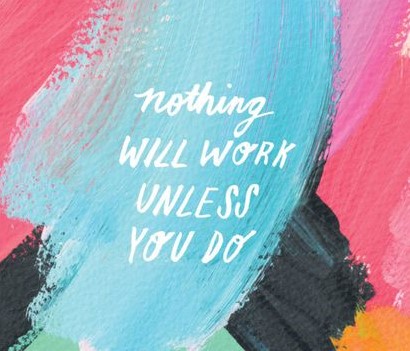 nothing
WILL WORK
UNLESS
YOU DO